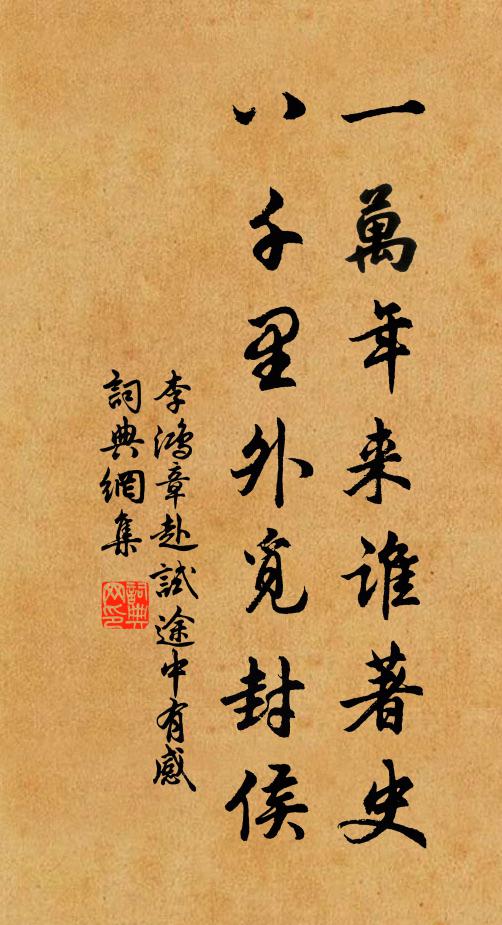 一萬年来誰著史
八千里外覓封侯
李鴻章赴試途中有感
詞典網集
詞典網印